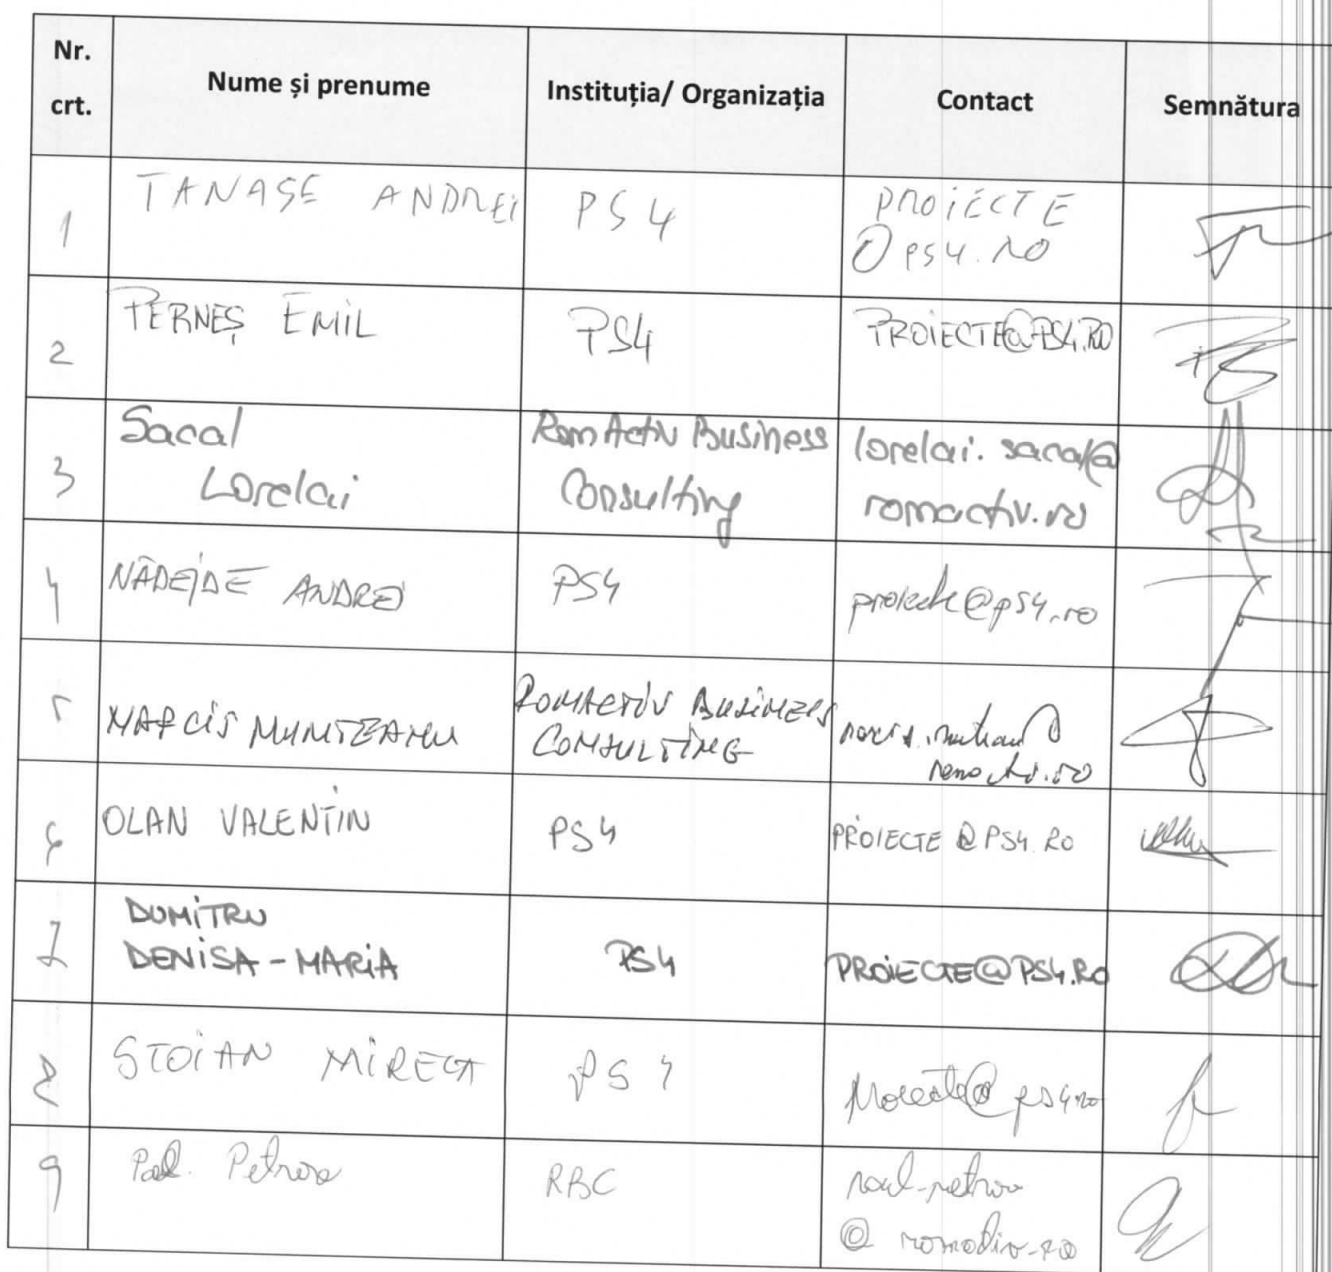 Nr. crt.
Nume și prenume
Instituția/ Organizația
Contact
Semnătura
1
TANASE ANDREI
PS4
PROIECTE
@ PS4.RO
2
TERNEȘ EMIL
PS4
PROIECTE@PS4.RO
3
Sacal
Lorelai
RomActiv Business
Consulting
lorelai.sacal@
romactiv.ro
4
NĂDEJDE ANDREI
PS4
proiecte@ps4.ro
5
NARCIS MUNTEANU
ROMACTIV BUSINESS
CONSULTING
6
OLAN VALENTIN
PS4
PROIECTE @ PS4.RO
7
DUMITRU
DENISA-MARIA
PS4
PROIECTE@PS4.RO
8
STOIAN MIRECA
PS4
proiecte@ps4.ro
9
RBC